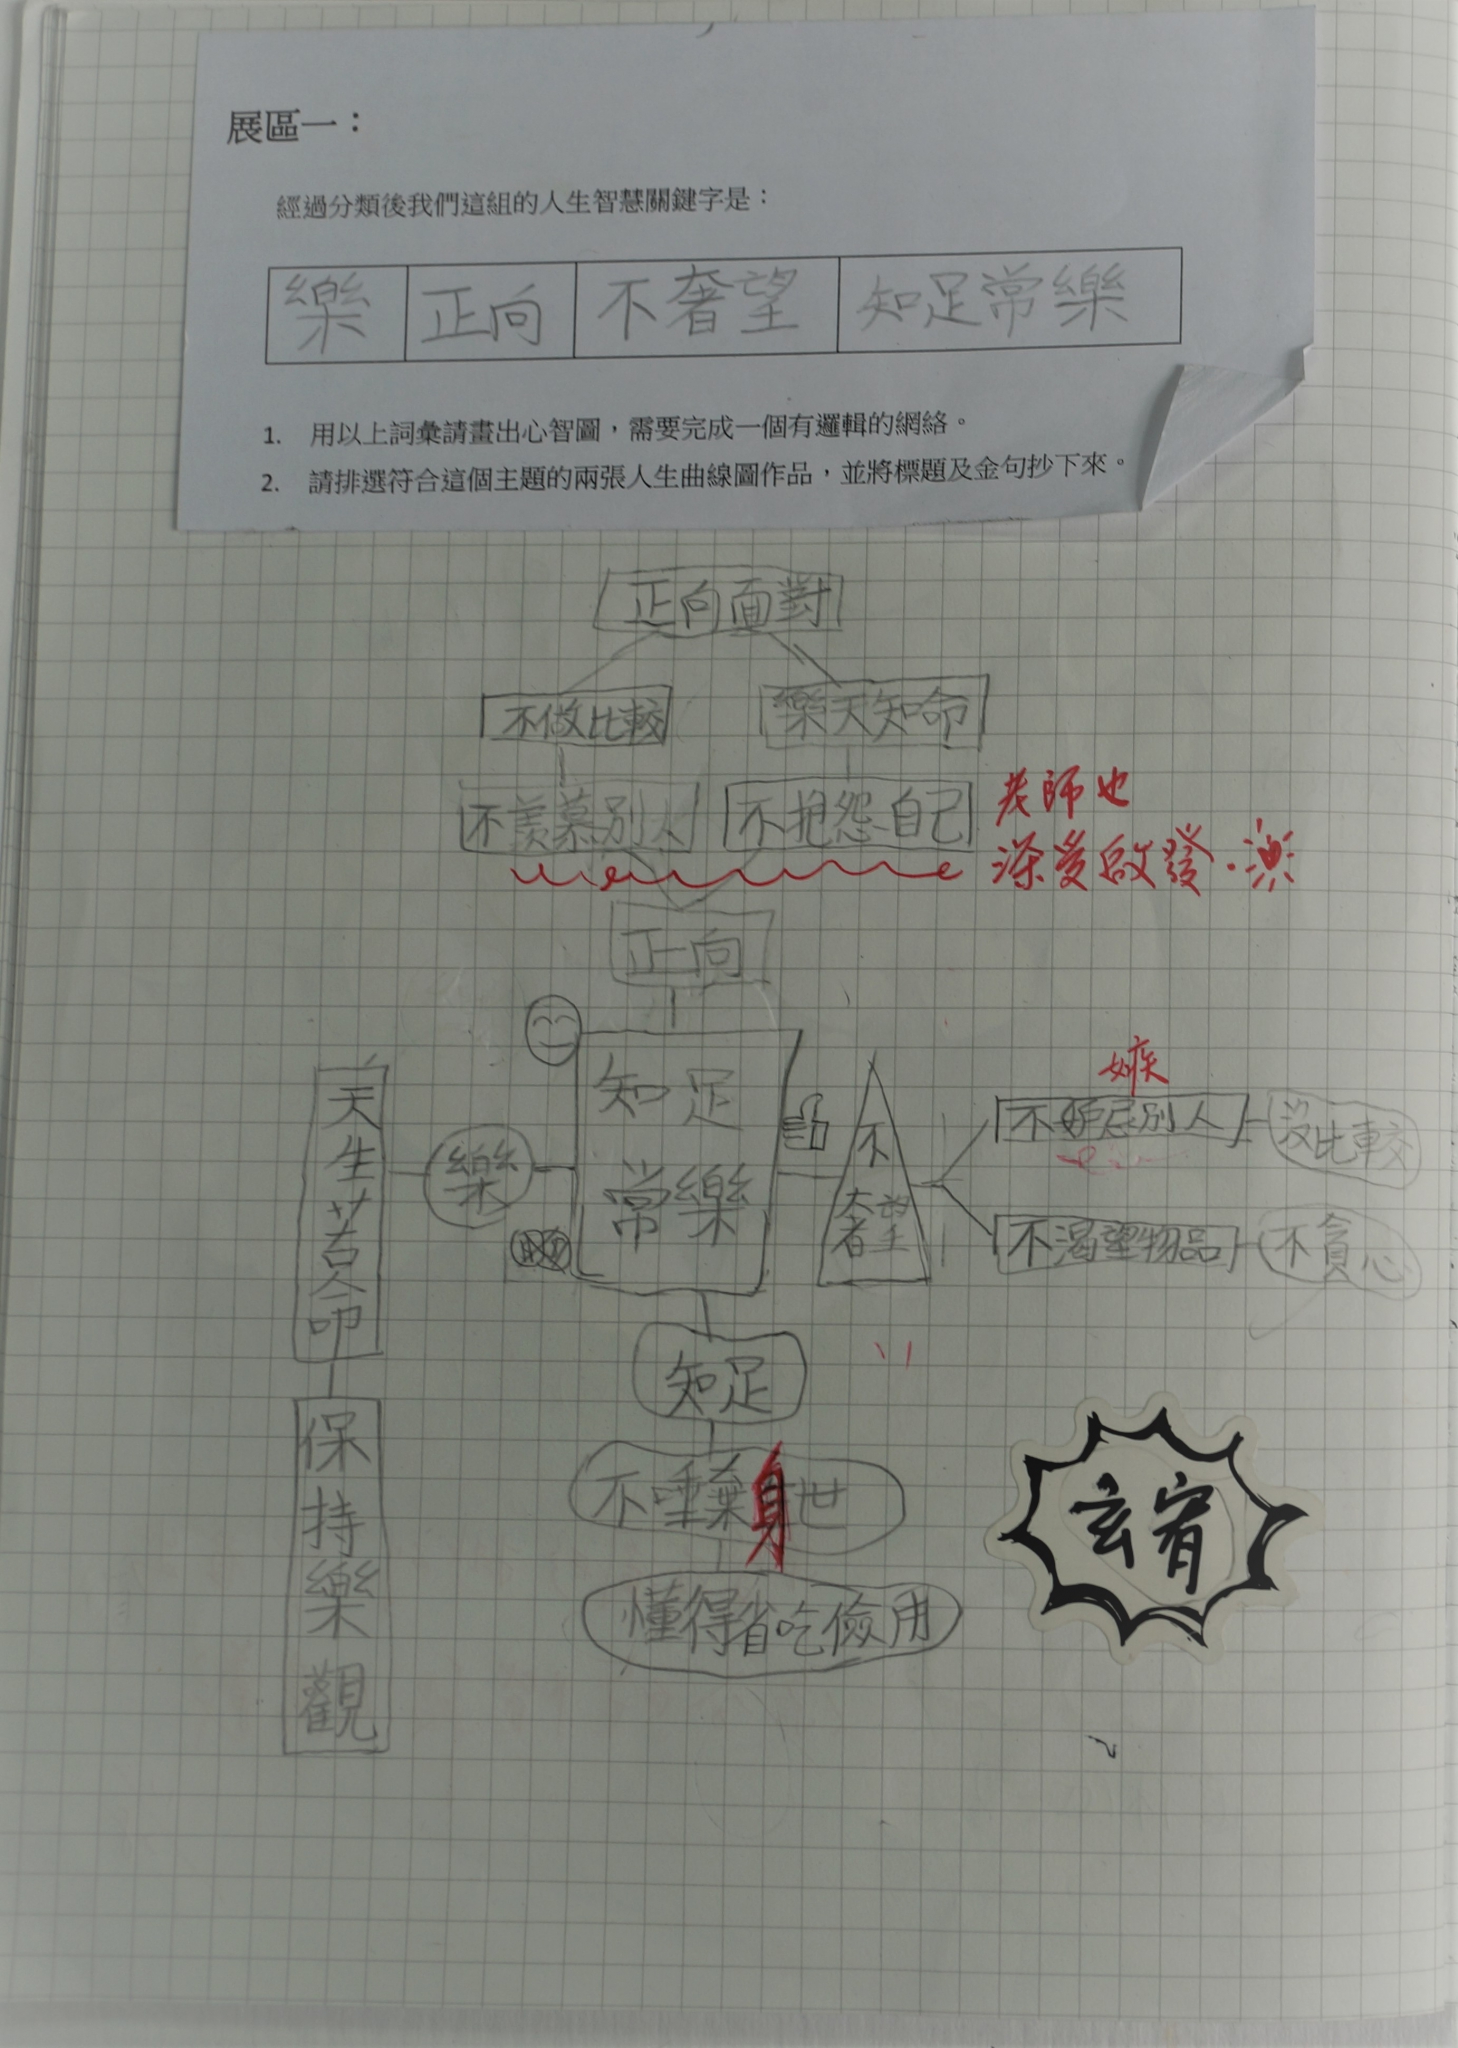 展區一：
經過分類後我們這組的人生智慧關鍵字是：
樂 正向 不奢望 知足常樂
1. 用以上詞彙請畫出心智圖，需要完成一個有邏輯的網絡。
2. 請排選符合這個主題的兩張人生曲線圖作品，並將標題及金句抄下來。
正向面對
不做比較 樂天知命
不羨慕別人 不抱怨自己
老師也
深受啟發
正向
知足
常樂
樂
天生苦命
保持樂觀
不奢望
嫉
不妒忌別人 沒比較
不渴望物品 不貪心
知足
不唾棄身世
懂得省吃儉用
玄宥